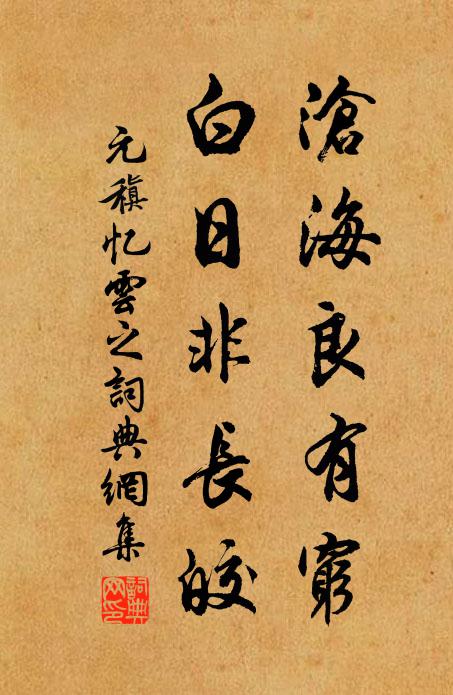 滄海良有窮
白日非長皎
元稹忆雲之詞典網集
詞典网印